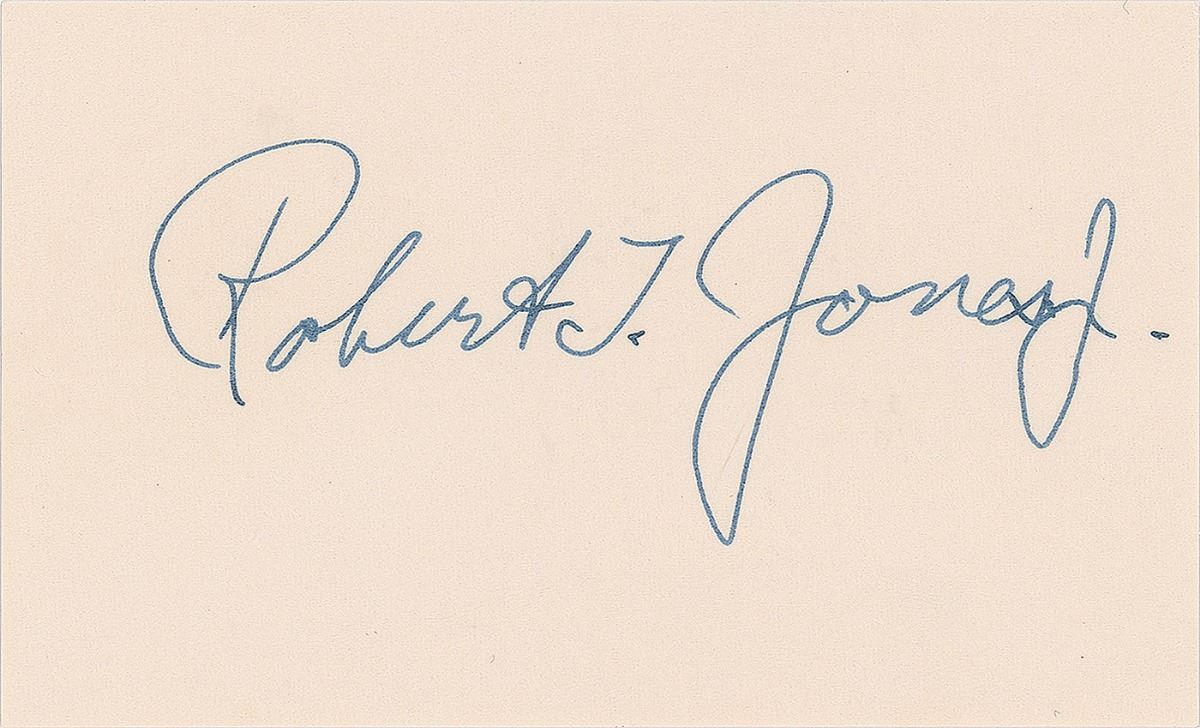 Robert T. Jones Jr.